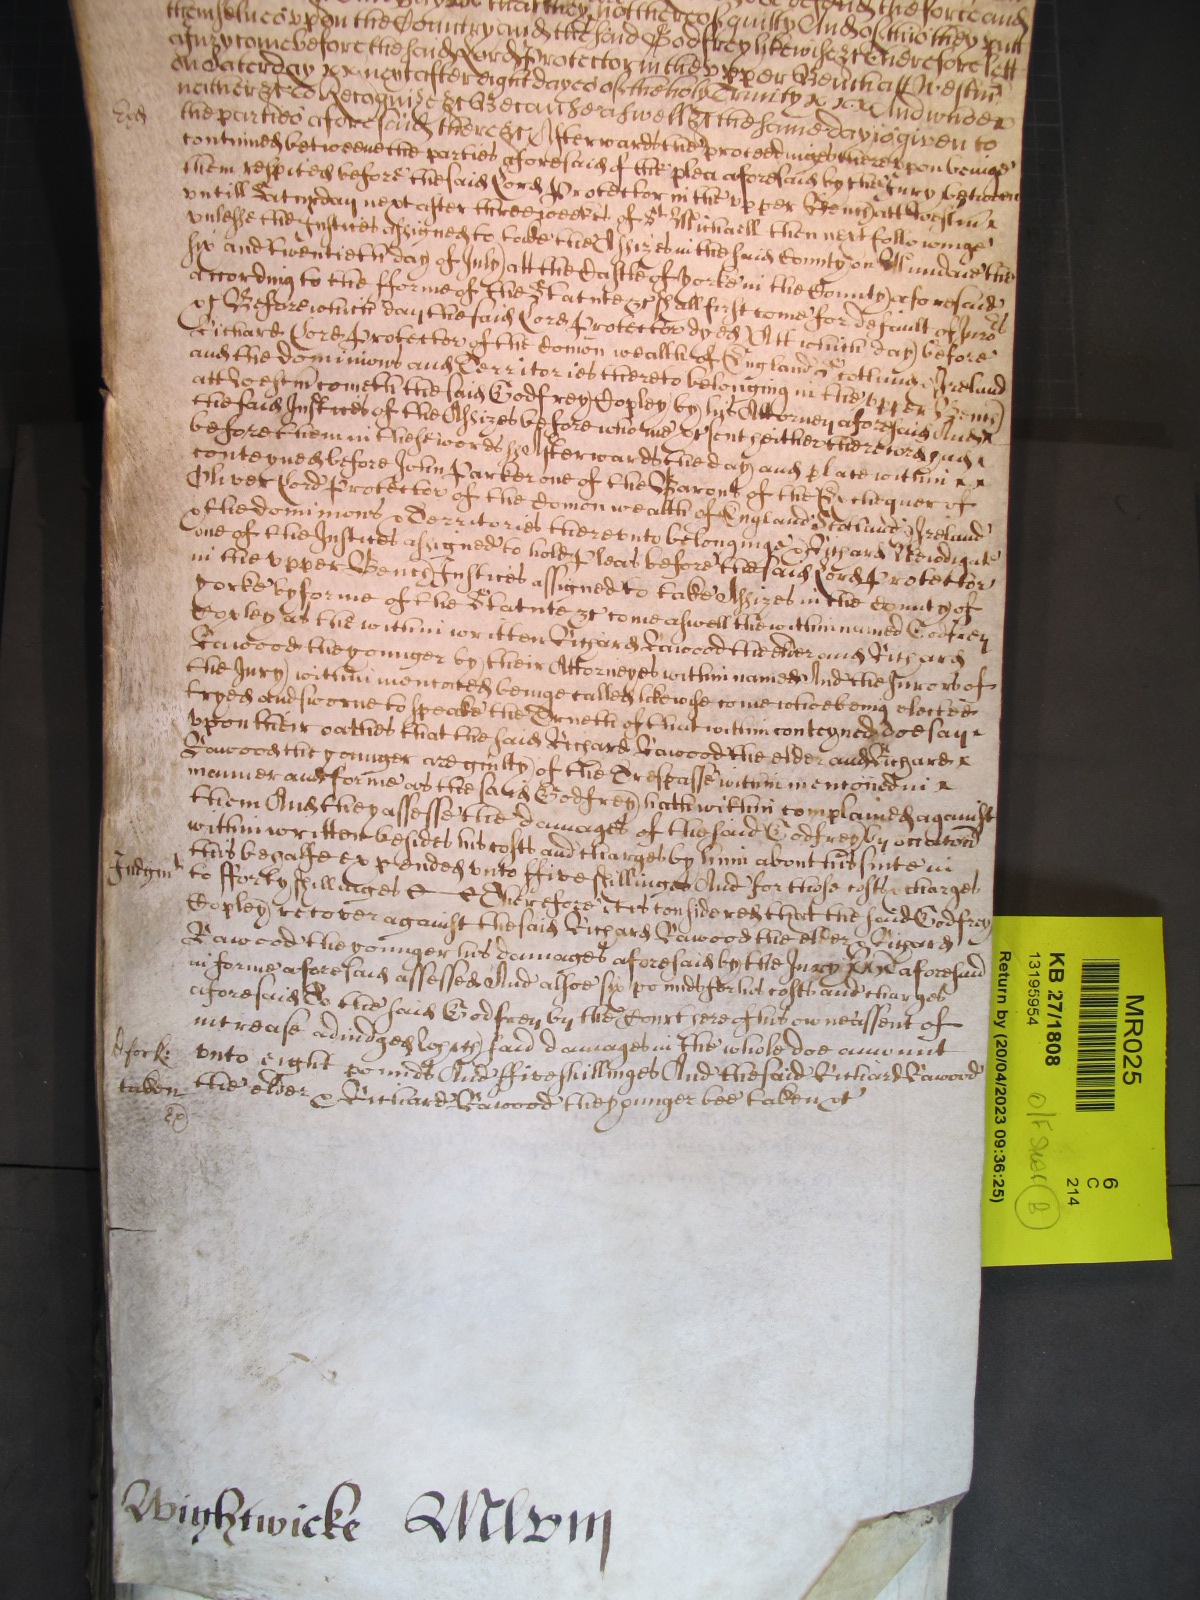 themselves upon the Country and the said Godfrey likewise &c Therefore lett
a Jury come before the said Lord Protector in the upper Bench att Westm
on Saturday next after eight dayes of the holy Trinity And whoe
neither &c To Recognize &c Because aswell &c the same day is given to
the parties aforesaid there &c Afterwards the proceedings thereupon beinge
continued betweene the parties aforesaid of the plea aforesaid by the Jury betweene
them respited before the said Lord Protector in the upper Bench att Westm
untill Saturday next after three weekes of St Michaell then next followinge
unlesse the Justices assigned to take the Assizes in the said County on Munday the
six and twentieth day of July att the Castle of Yorke in the County aforesaid
according to the fforme of the Statute &c shall first come for default of Juro
&c Before which day the said Lord Protector dyed Att which day before
Richard Lord Protector of the Comon wealth of England Scotland & Ireland
and the dominions and Territories thereto belonging in the upper Bench
att Westm cometh the said Godfrey Copley by his Attorney aforesaid And
the said Justices of the Assizes before whome &c sent hither their record had
before them in these words ss Afterwards the day and place within
conteyned before John Parker one of the Barons of the Exchequer of
Oliver Lord Protector of the Comon wealth of England Scotland & Ireland
& the dominions & Territories thereunto belonginge & Richard Newdigate
one of the Justices assigned to hold Pleas before the said Lord Protector
in the upper Bench Justices assigned to take Assizes in the County of
Yorke by forme of the Statute &c come aswell the within named Godfrey
Copley as the within written Richard Rawood the elder and Richard
Rawood the younger by their Attorneyes within named And the Jurors of
the Jury within menconed beinge called likewise come whoe being elected
tryed and sworne to speake the Trueth of that within conteyned doe say
upon their oathes that the said Richard Rawood the elder and Richard
Rawood the younger are guilty of the Trespasse within mencioned in
manner and forme as the said Godfrey hath within complained against
them And they assesse the damages of the said Godfrey by occacon
within written besides his costs and charges by him about his suite in
this behalfe expended unto ffive shillings And for those costs & charges
Judgmt to fforty shillinges &c Therefore it is considered that the said Godfrey
Copley recover against the said Richard Rawood the elder & Richard
Rawood the younger his damages aforesaid by the Jury aforesaid
in forme aforesaid assessed And alsoe six pounds for his costs and charges
aforesaid to the said Godfrey by the Court here of his owne assent of
increase adiudged which said damages in the whole doe amount
unto eight pounds And ffive shillinges And the said Richard Rawood
taken the elder & Richard Rawood the younger bee taken &c
Wightwicke Mlviii
MR025
KB 27/1808
13195954
Return by (20/04/2023 09:36:25)
6
C
214